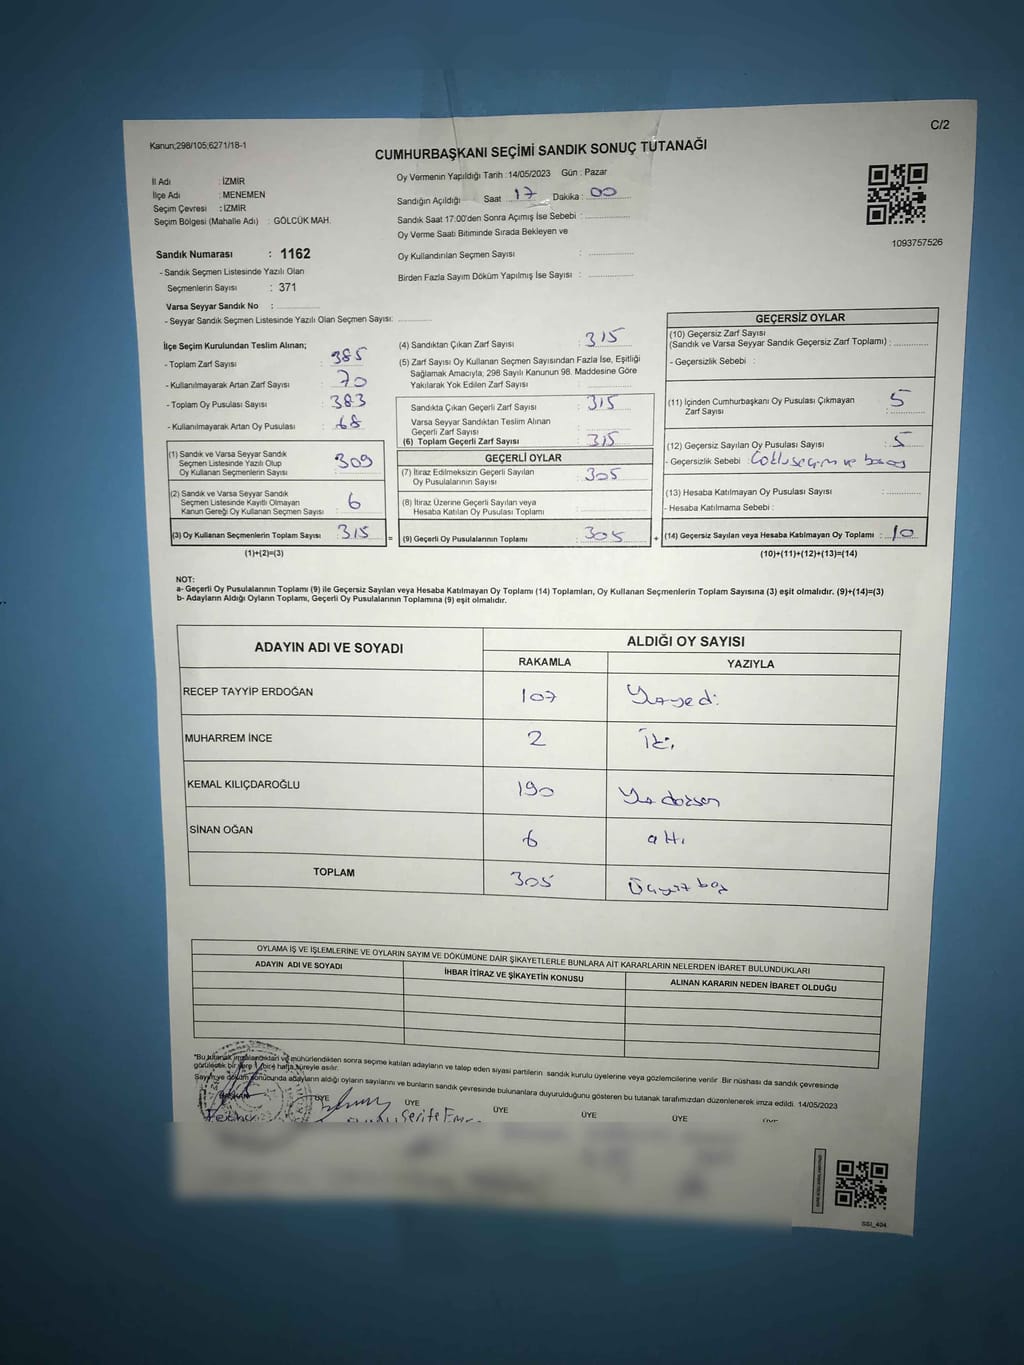 C/2
Kanun;298/105;6271/18-1
CUMHURBAŞKANI SEÇİMİ SANDIK SONUÇ TUTANAĞI
İl Adı : İZMİR
İlçe Adı : MENEMEN
Seçim Çevresi : İZMİR
Seçim Bölgesi (Mahalle Adı) : GÖLCÜK MAH.
Sandık Numarası : 1162
- Sandık Seçmen Listesinde Yazılı Olan
Seçmenlerin Sayısı : 371
Varsa Seyyar Sandık No :
- Seyyar Sandık Seçmen Listesinde Yazılı Olan Seçmen Sayısı:
Oy Vermenin Yapıldığı Tarih :14/05/2023 Gün : Pazar
Sandığın Açıldığı Saat 17 Dakika : 00
Sandık Saat 17:00'den Sonra Açımış İse Sebebi :
Oy Verme Saati Bitiminde Sırada Bekleyen ve
Oy Kullandırılan Seçmen Sayısı :
Birden Fazla Sayım Döküm Yapılmış İse Sayısı :
1093757526
İlçe Seçim Kurulundan Teslim Alınan;
- Toplam Zarf Sayısı : 385
- Kullanılmayarak Artan Zarf Sayısı : 70
- Toplam Oy Pusulası Sayısı : 383
- Kullanılmayarak Artan Oy Pusulası : 68
(1) Sandık ve Varsa Seyyar Sandık
Seçmen Listesinde Yazılı Olup
Oy Kullanan Seçmenlerin Sayısı : 309
(2) Sandık ve Varsa Seyyar Sandık
Seçmen Listesinde Kayıtlı Olmayan
Kanun Gereği Oy Kullanan Seçmen Sayısı : 6
(3) Oy Kullanan Seçmenlerin Toplam Sayısı : 315
(1)+(2)=(3)
(4) Sandıktan Çıkan Zarf Sayısı : 315
(5) Zarf Sayısı Oy Kullanan Seçmen Sayısından Fazla İse, Eşitliği
Sağlamak Amacıyla; 298 Sayılı Kanunun 98. Maddesine Göre
Yakılarak Yok Edilen Zarf Sayısı :
Sandıkta Çıkan Geçerli Zarf Sayısı : 315
Varsa Seyyar Sandıktan Teslim Alınan
Geçerli Zarf Sayısı :
(6) Toplam Geçerli Zarf Sayısı : 315
GEÇERLİ OYLAR
(7) İtiraz Edilmeksizin Geçerli Sayılan
Oy Pusulalarının Sayısı : 305
(8) İtiraz Üzerine Geçerli Sayılan veya
Hesaba Katılan Oy Pusulası Toplamı :
= (9) Geçerli Oy Pusulalarının Toplamı : 305
GEÇERSİZ OYLAR
(10) Geçersiz Zarf Sayısı
(Sandık ve Varsa Seyyar Sandık Geçersiz Zarf Toplamı) :
- Geçersizlik Sebebi :
(11) İçinden Cumhurbaşkanı Oy Pusulası Çıkmayan
Zarf Sayısı : 5
(12) Geçersiz Sayılan Oy Pusulası Sayısı : 5
- Geçersizlik Sebebi : Çoklu seçim ve
(13) Hesaba Katılmayan Oy Pusulası Sayısı :
- Hesaba Katılmama Sebebi :
+ (14) Geçersiz Sayılan veya Hesaba Katılmayan Oy Toplamı : 10
(10)+(11)+(12)+(13)=(14)
NOT:
a- Geçerli Oy Pusulalarının Toplamı (9) ile Geçersiz Sayılan veya Hesaba Katılmayan Oy Toplamı (14) Toplamları, Oy Kullanan Seçmenlerin Toplam Sayısına (3) eşit olmalıdır. (9)+(14)=(3)
b- Adayların Aldığı Oyların Toplamı, Geçerli Oy Pusulalarının Toplamına (9) eşit olmalıdır.
ADAYIN ADI VE SOYADI
ALDIĞI OY SAYISI
RAKAMLA YAZIYLA
RECEP TAYYİP ERDOĞAN 107 Yüzyedi
MUHARREM İNCE 2 İki
KEMAL KILIÇDAROĞLU 190 Yüz doksan
SİNAN OĞAN 6 altı
TOPLAM 305 Üçyüz beş
OYLAMA İŞ VE İŞLEMLERİNE VE OYLARIN SAYIM VE DÖKÜMÜNE DAİR ŞİKAYETLERLE BUNLARA AİT KARARLARIN NELERDEN İBARET BULUNDUKLARI
ADAYIN ADI VE SOYADI İHBAR İTİRAZ VE ŞİKAYETİN KONUSU ALINAN KARARIN NEDEN İBARET OLDUĞU
*Bu tutanak imzalandıktan ve mühürlendikten sonra seçime katılan adayların ve talep eden siyasi partilerin sandık kurulu üyelerine veya gözlemcilerine verilir .Bir nüshası da sandık çevresinde
görülecek bir yere 1 (bir) hafta süreyle asılır.
Sayım ve döküm sonucunda adayların aldığı oyların sayılarını ve bunların sandık çevresinde bulunanlara duyurulduğunu gösteren bu tutanak tarafımızdan düzenlenerek imza edildi. 14/05/2023
BAŞKAN ÜYE ÜYE ÜYE ÜYE ÜYE ÜYE
Şerife
SSI_404